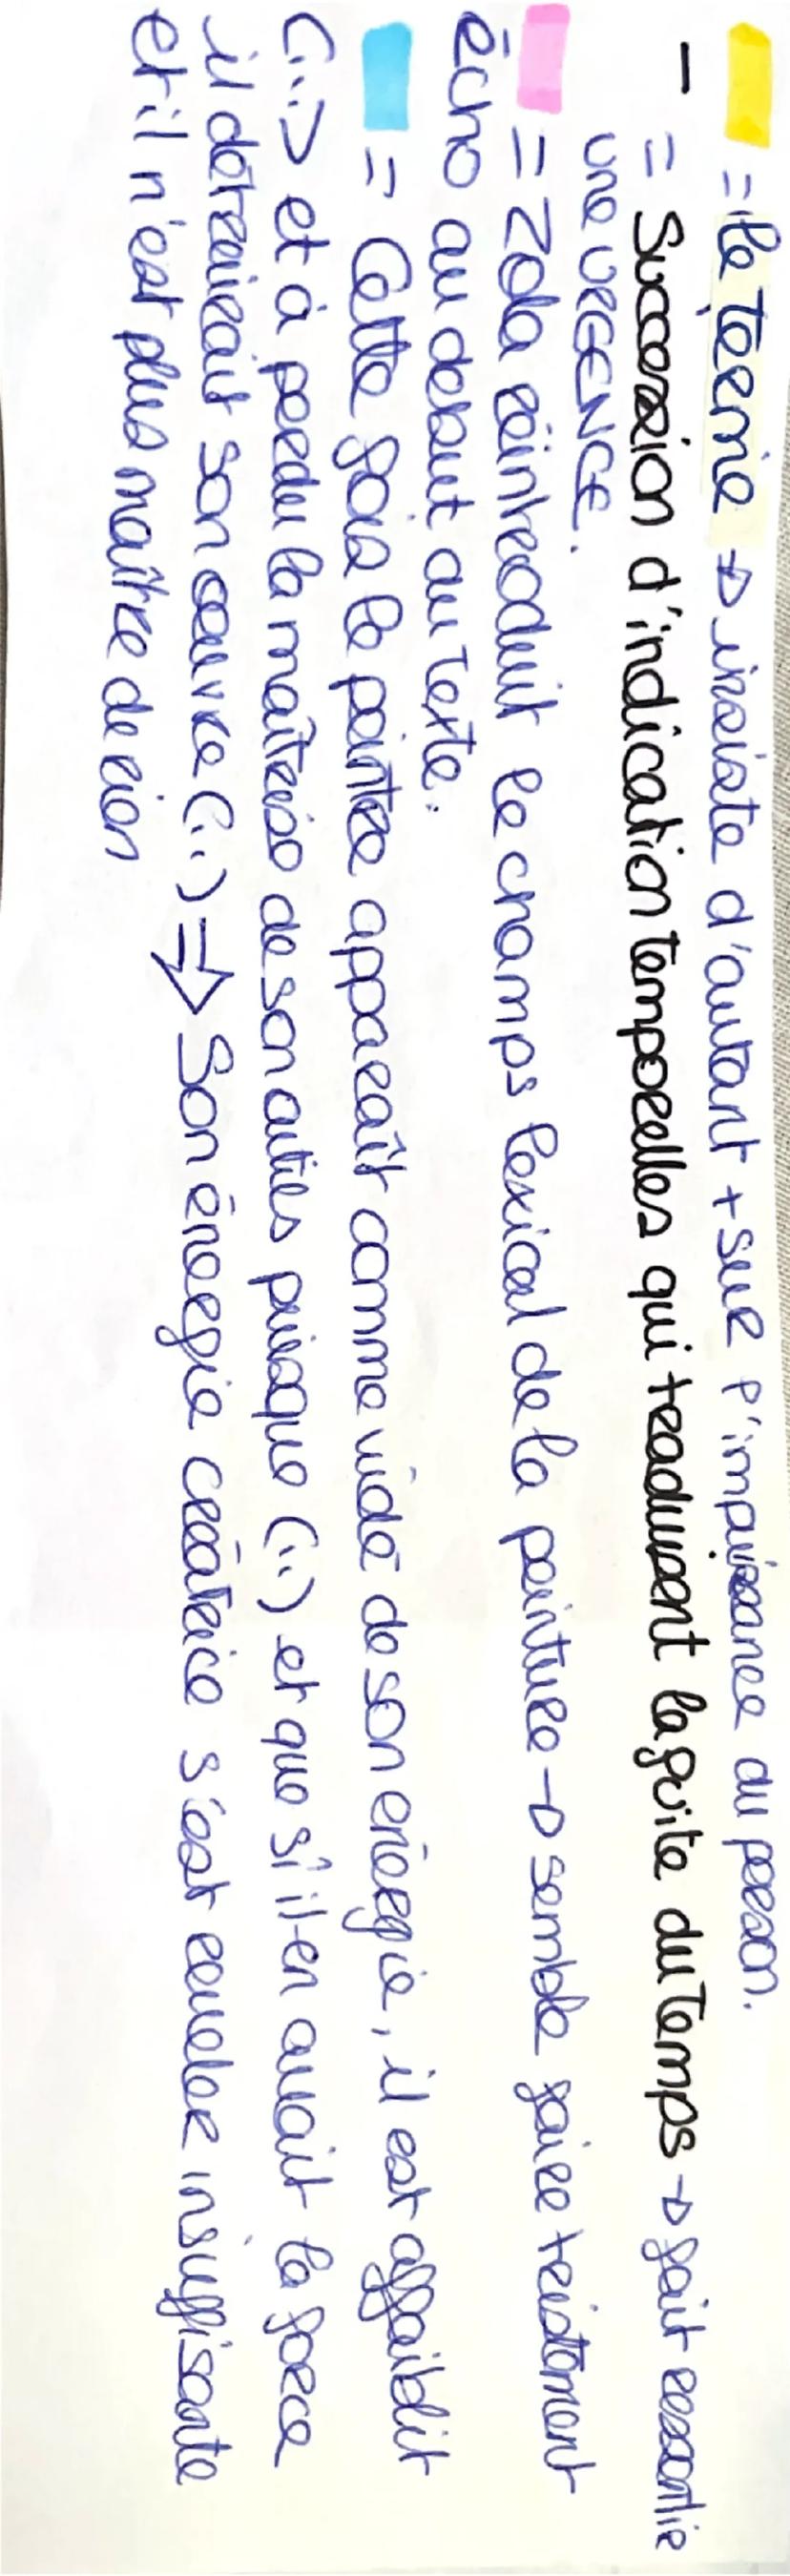 = le terme → insiste d'autant + sur l'impuissance du person.
– = Succession d'indication temporelles qui traduisent la fuite du temps → fait ressortir
une URGENCE.
= Zola réintroduit le champs lexical de la peinture → semble faire tristement
écho au debut du texte.
= Cette fois le peintre apparaît comme vidé de son énergie, il est affaiblit
(...) et à perdu la maîtrise de son outils puisque (..) et que si il en avait la force
il détruirait son oeuvre (..) ⇒ Son énergie créatrice s'est reveler insuffisante
et il n'est plus maître de rien